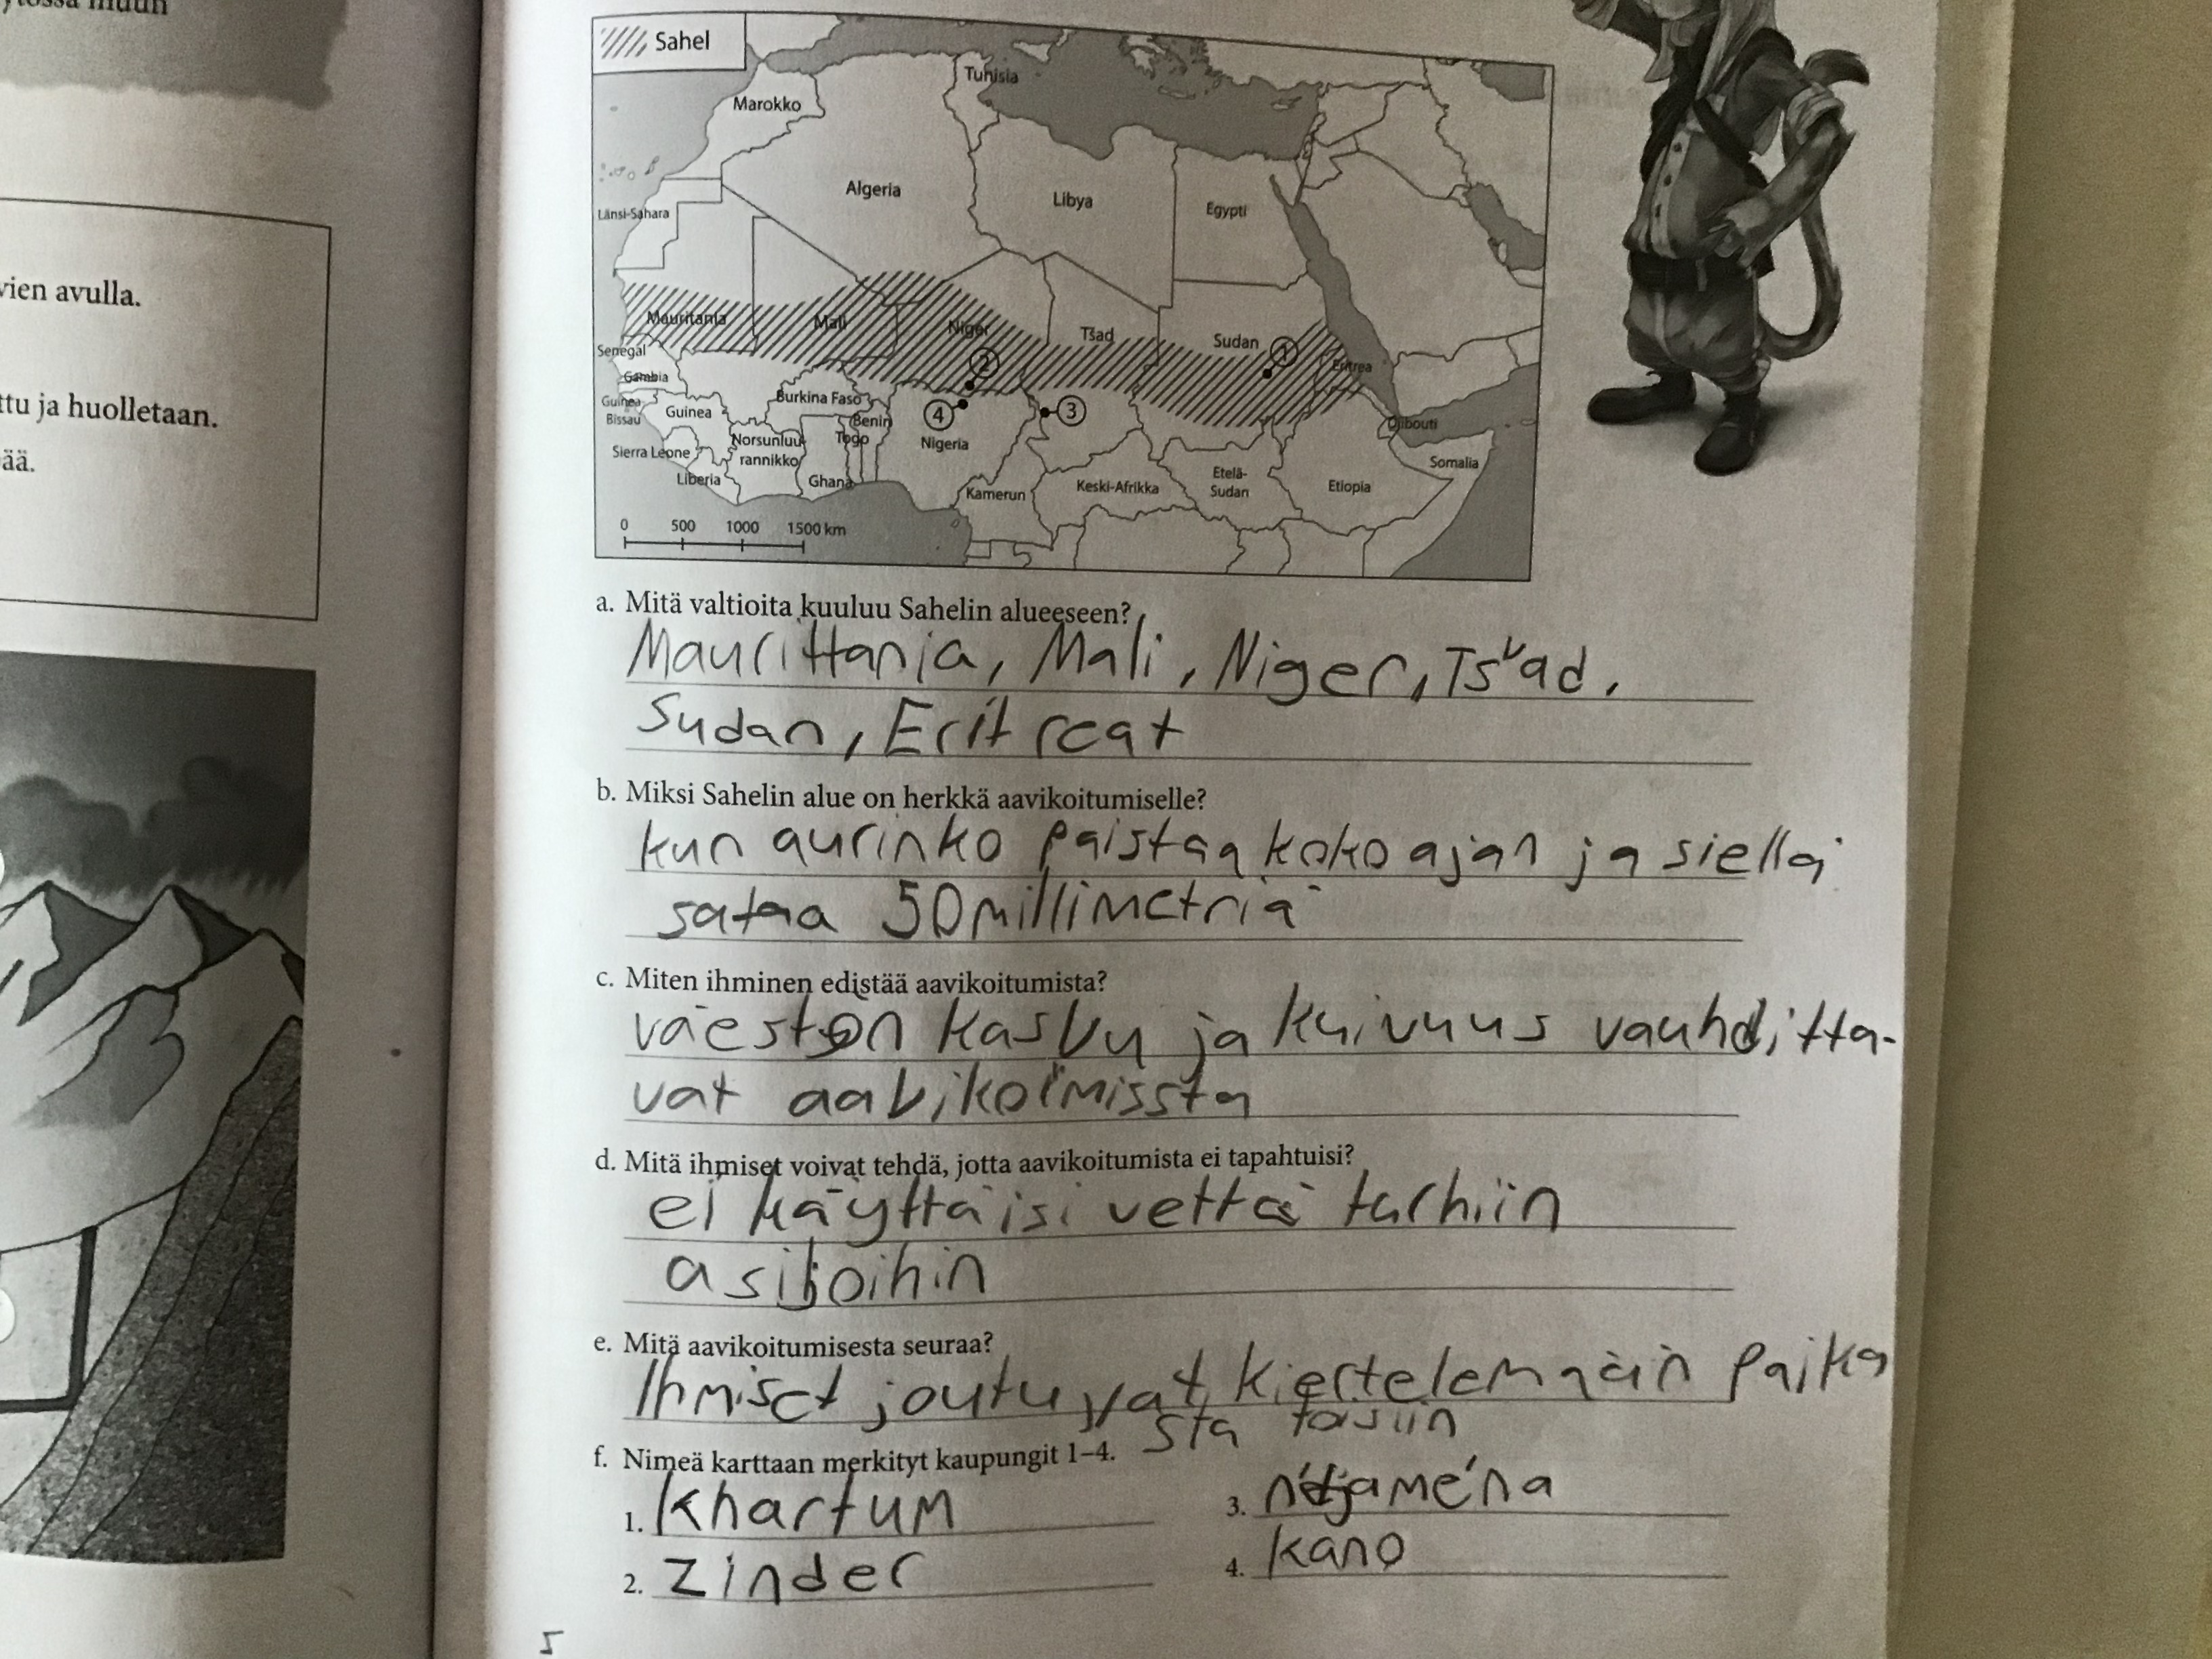 vien avulla.
ttu ja huolletaan.
ää.
Sahel
Tunisia
Marokko
Algeria
Libya
Egypti
Länsi-Sahara
Mauritania
Mali
Niger
Tšad
Sudan
Eritrea
1
2
Senegal
Gambia
Guinea
Bissau
Guinea
Burkina Faso
Benin
4
3
Norsunluu-
rannikko
Togo
Nigeria
Djibouti
Sierra Leone
Liberia
Ghana
Kamerun
Keski-Afrikka
Etelä-
Sudan
Etiopia
Somalia
0 500 1000 1500 km
a. Mitä valtioita kuuluu Sahelin alueeseen?
Maurittania, Mali, Niger, Tšad,
Sudan, Eritreat
b. Miksi Sahelin alue on herkkä aavikoitumiselle?
kun aurinko paistaa koko ajan ja siellä
sataa 50 millimetriä
c. Miten ihminen edistää aavikoitumista?
väestön kasvu ja kuivuus vauhditta-
vat aavikoimissta
d. Mitä ihmiset voivat tehdä, jotta aavikoitumista ei tapahtuisi?
ei käyttäisi vettä turhiin
asioihin
e. Mitä aavikoitumisesta seuraa?
Ihmiset joutuvat kiertelemään paika
sta toisiin
f. Nimeä karttaan merkityt kaupungit 1–4.
1. Khartum
3. n'djaména
2. Zinder
4. kano
5